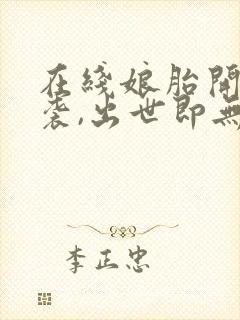 在綫娘胎開
袭,出世即無
李正忠